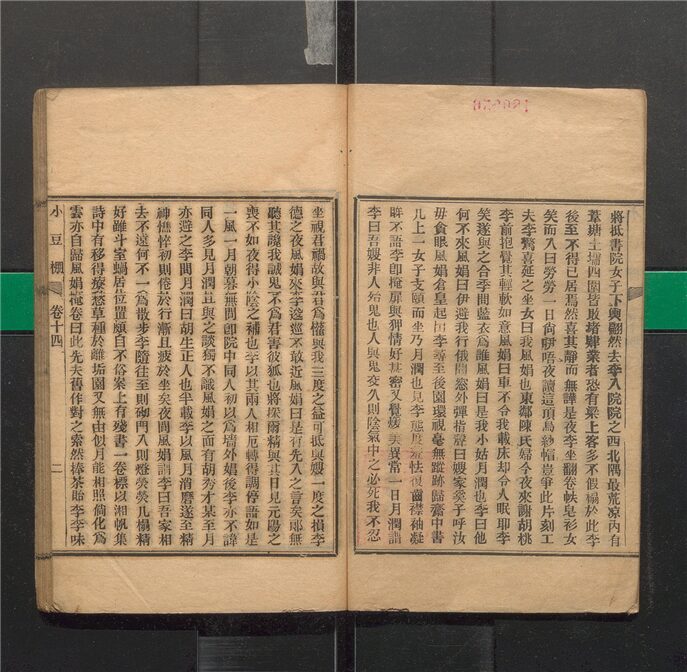 將抵書院女子下輿翩然去李入院院之西北隅最荒凉内有
葦塘土壩四圍皆敗堵肄業者恐有梁上客多不假榻於此李
後至不得已居焉然喜其靜而無譁是夜李坐翻卷帙皂衫女
笑而入曰勞勞一日尚伊唔夜讀這頂烏紗幅豈爭此片刻工
夫李驚喜延之坐女曰我風娟也東鄰陳氏婦今夜來謝胡桃
李前抱覺其輕軟如意風娟曰車不令我載床却令人眠耶李
笑遂與之合李問藍衣爲誰風娟曰是我小姑月澗也李曰他
何不來風娟曰伊避我行俄聞窻外彈指聲曰嫂家羹子呼汝
毋貪眠風娟倉皇起出李尋至後園環視毫無蹤跡歸齋中書
几上一女子支頤而坐乃月澗也見李態度羞怯復齒襟袖凝
眸不語李即掩扉與狎情好甚密又覺煖美異常一日月澗謂
李曰吾嫂非人殆鬼也人與鬼交久則陰氣中之必死我不忍
坐視君禍故與君爲懽與我三度之益可抵與嫂一度之損李
德之夜風娟來李逡巡不敢近風娟曰是有先入之言矣郎無
聽其讒我誠鬼不爲君害彼狐也將採爾精與其日見元陽之
喪不如夜得小陰之補也李以其兩人相厄轉得調停語如是
一風一月朝暮無間即院中同人初以爲墻外娼後李亦不諱
同人多見月澗且與之談獨不識風娟之面有胡秀才某至月
亦避之李問月澗曰胡生正人也半載李以風月消磨遂至精
神憔悴初則倦於行漸且疲於坐矣夜間風娟謂李曰吾家相
去不遠何不一爲散步李隨往至則砌門入則燈熒熒几榻精
好雖斗室蝸居位置頗自不俗案上有殘書一卷標以湘帆集
詩中有移得療愁草種於離垢園又無由似月能相照倘化爲
雲亦自歸風娟掩卷曰此先夫舊作對之索然捧茶飴李李味
小豆棚
卷十四
二